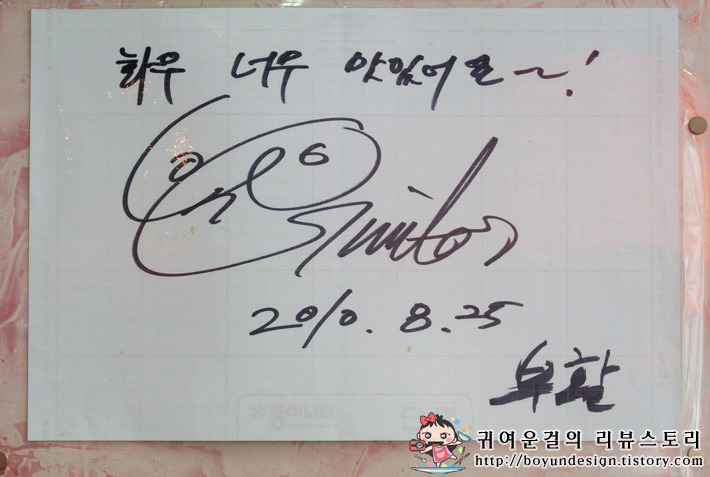 화우 너무 맛있어요~!
2010. 8. 25
부활
귀여운걸의 리뷰스토리
http://boyundesign.tistory.com